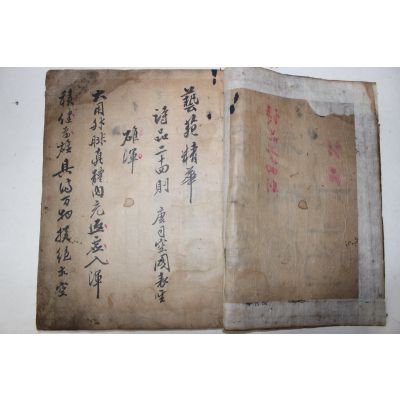 藝苑精華
詩品二十四則 唐司空圖表聖
雄渾
大用外腓真體内充返虛入渾
積健為雄具備万物橫絶太空